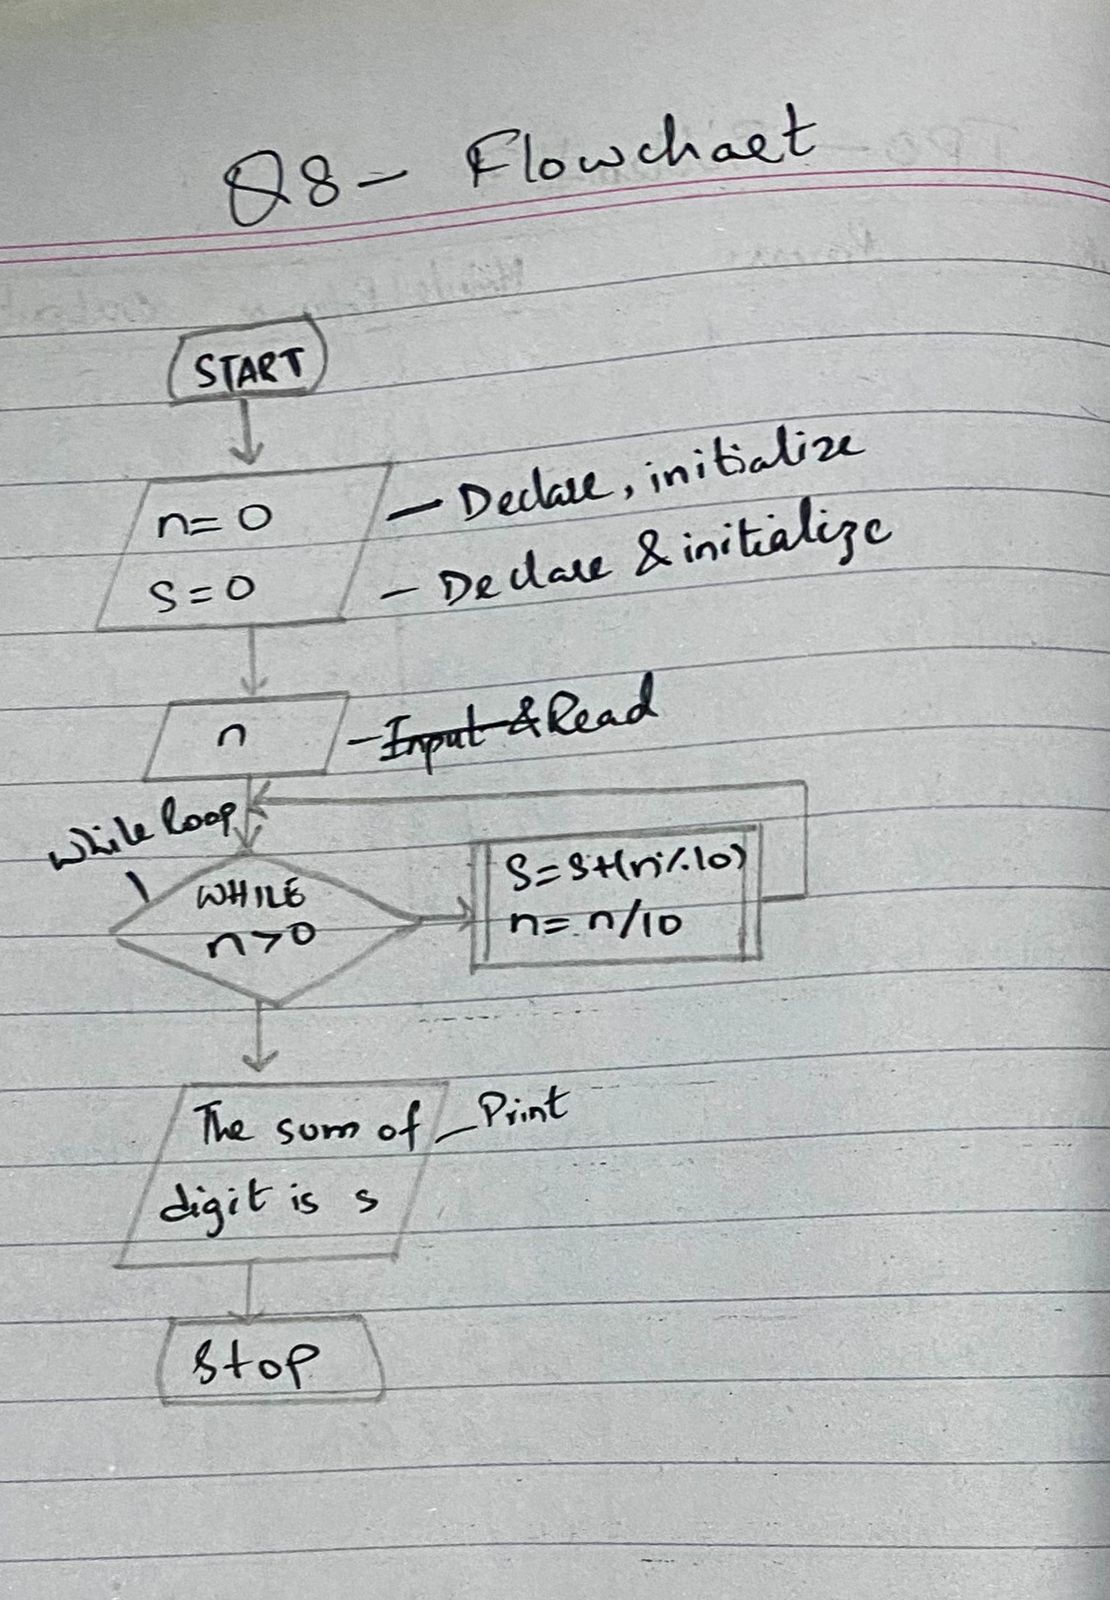 Q8 - Flowchart
START
n = 0 - Declare, initialize
S = 0 - Declare & initialize
n - Input & Read
While loop
WHILE
n > 0
S = S + (n % 10)
n = n/10
The sum of - Print
digit is s
Stop